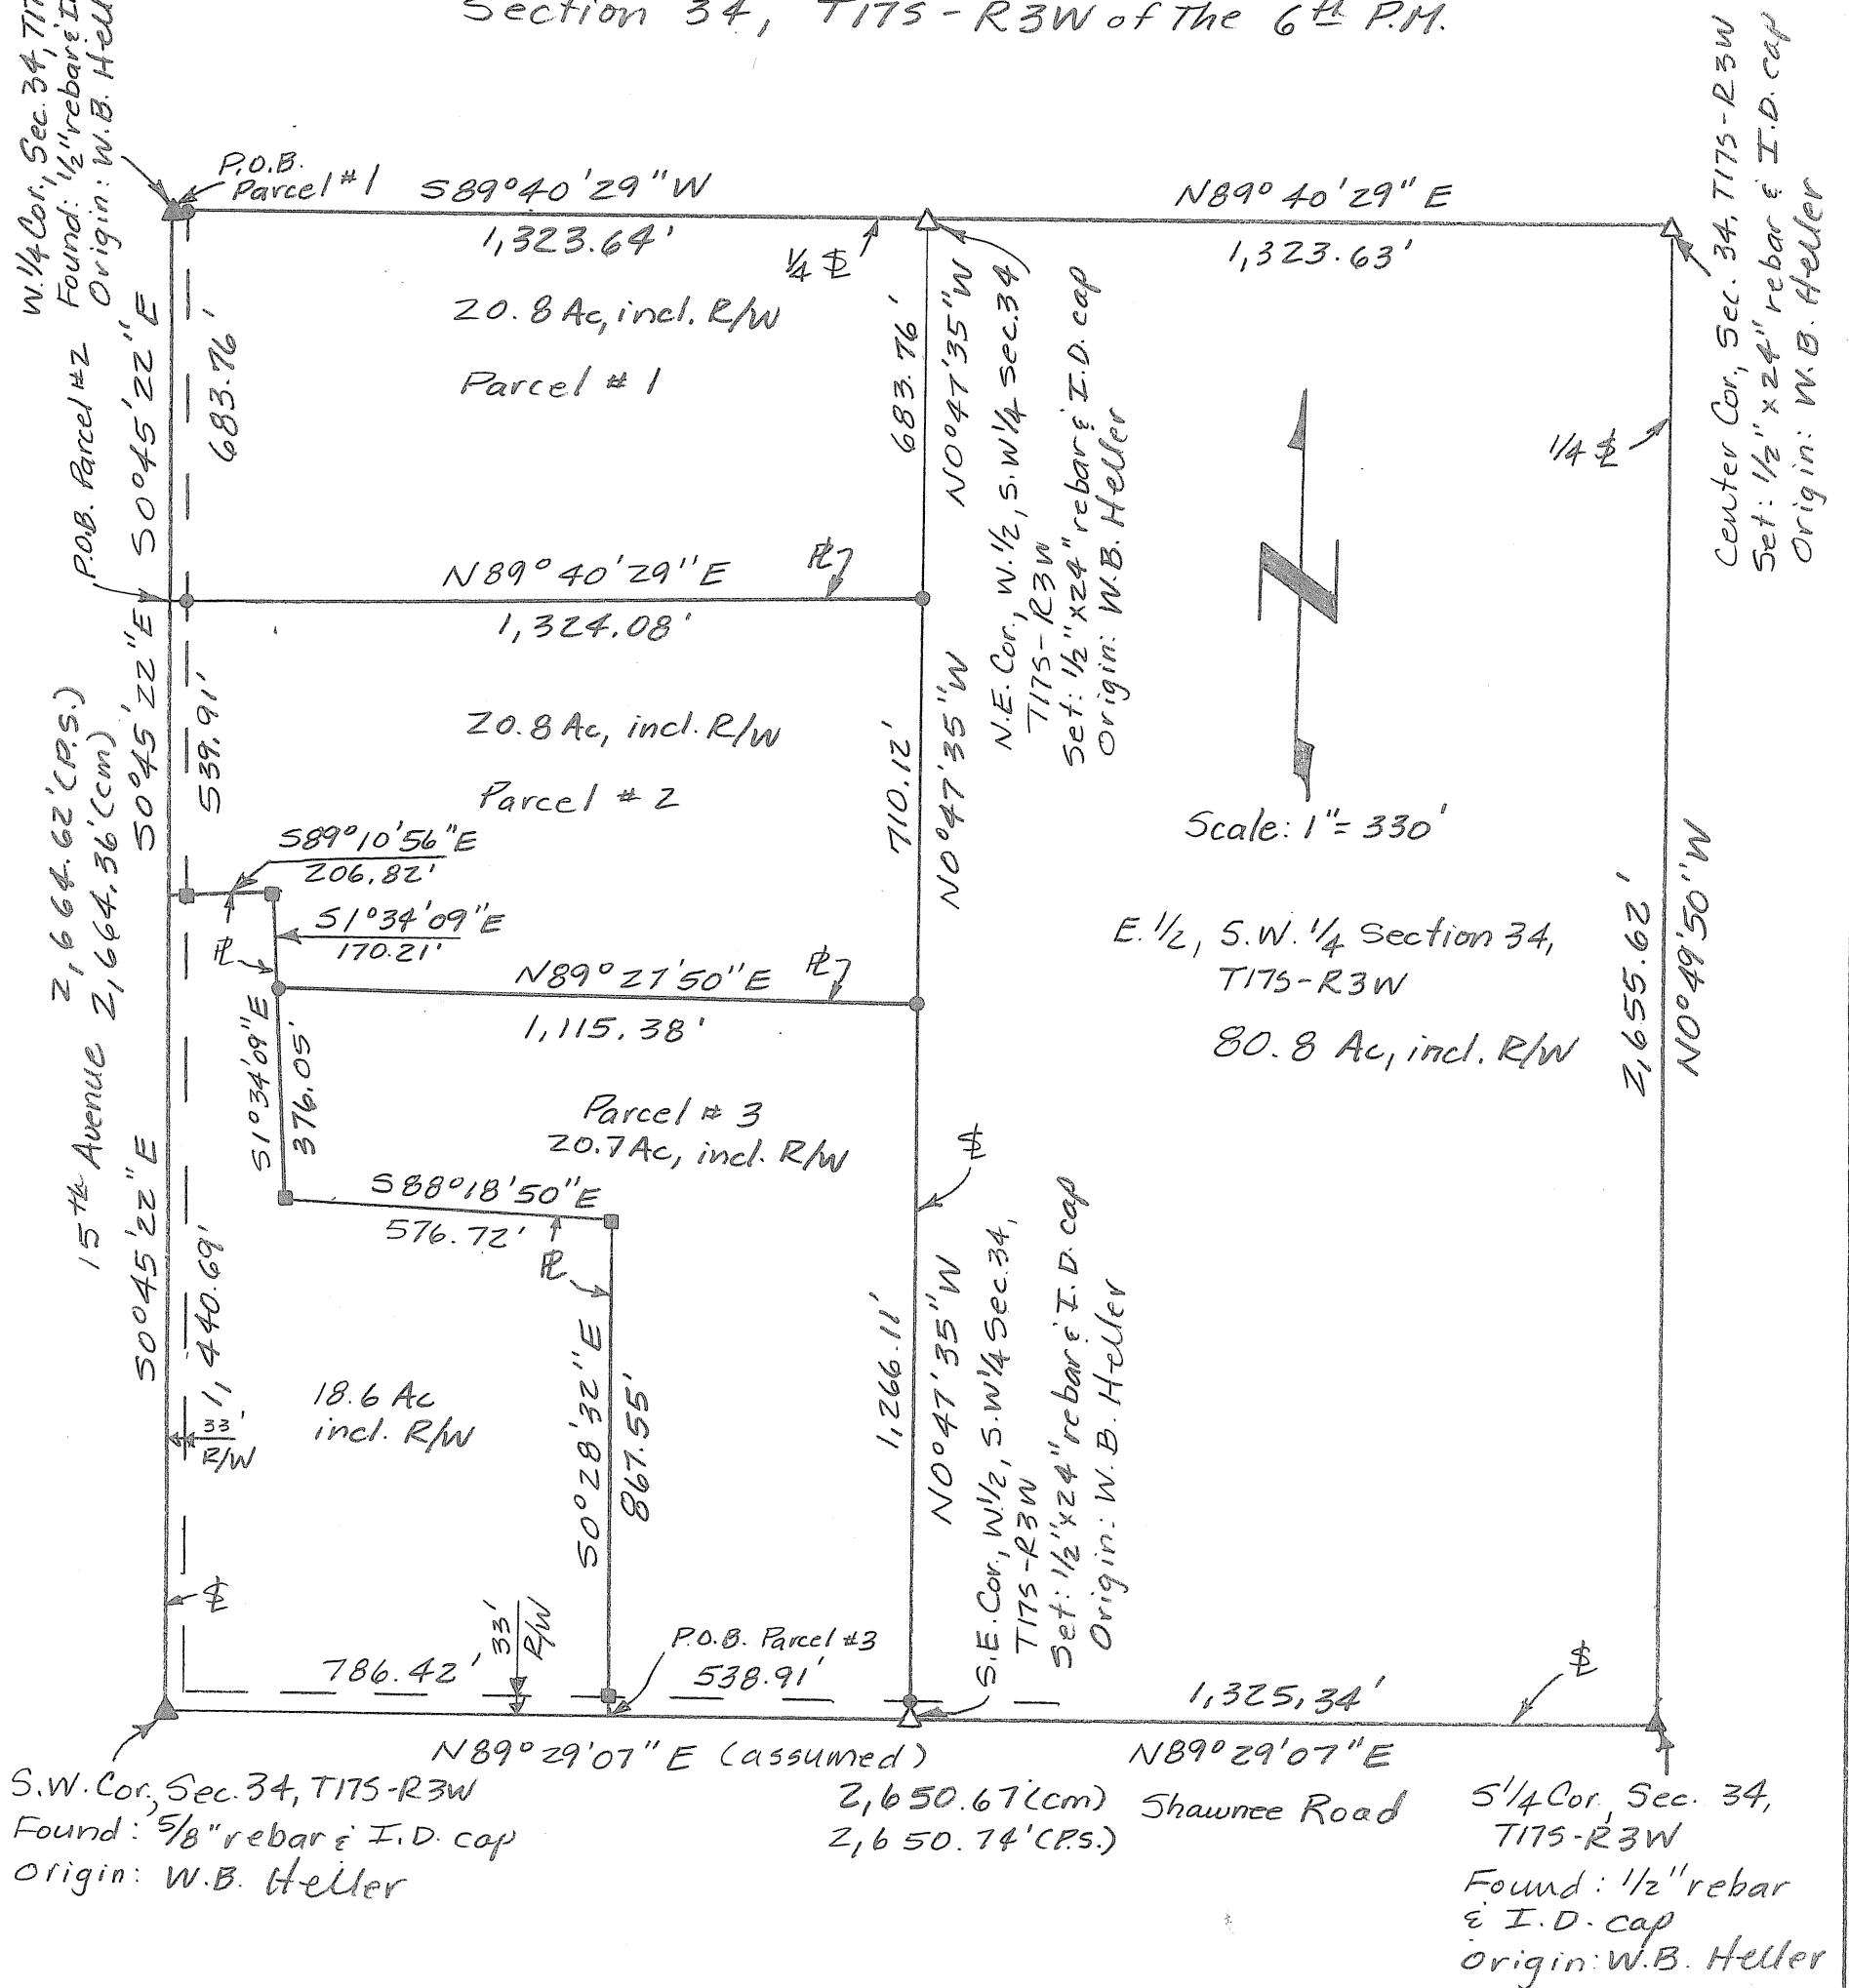 Section 34, T17S-R3W of The 6th P.M.
W.1/4 Cor., Sec. 34, T17
Found: 1/2" rebar & I.
Origin: W.B. Hel
P.O.B.
Parcel #1
S89°40'29"W
1,323.64'
1/4 SL
N89°40'29"E
1,323.63'
Center Cor., Sec. 34, T17S-R3W
Set: 1/2" x 24" rebar & I.D. cap
Origin: W.B. Heller
20.8 Ac, incl. R/W
Parcel #1
S0°45'22"E
683.76'
683.76'
N0°47'35"W
N.E. Cor., W.1/2, S.W1/4 Sec.34
T17S-R3W
Set: 1/2" x24" rebar & I.D. cap
Origin: W.B. Heller
1/4 SL
P.O.B. Parcel #2
N89°40'29"E
PL
1,324.08'
S0°45'22"E
539.91'
20.8 Ac, incl. R/W
Parcel #2
710.12'
N0°47'35"W
Scale: 1"=330'
2,664.62'(P.S.)
2,664.36'(cm)
15th Avenue
S89°10'56"E
206.82'
S1°34'09"E
170.21'
PL
N89°27'50"E
PL
1,115.38'
E.1/2, S.W.1/4 Section 34,
T17S-R3W
80.8 Ac, incl. R/W
2,655.62'
N0°49'50"W
S1°34'09"E
376.05'
Parcel #3
20.7 Ac, incl. R/W
SL
S88°18'50"E
576.72'
PL
S0°45'22"E
1,440.69'
33'
R/W
18.6 Ac
incl. R/W
S0°28'32"E
867.55'
1,266.11'
N0°47'35"W
S.E. Cor., W.1/2, S.W1/4 Sec.34,
T17S-R3W
Set: 1/2"x24" rebar & I.D. cap
Origin: W.B. Heller
SL
33'
R/W
P.O.B. Parcel #3
786.42'
538.91'
1,325.34'
SL
N89°29'07"E (assumed)
N89°29'07"E
2,650.67'(cm)
2,650.74'(P.S.)
Shawnee Road
S.W. Cor., Sec. 34, T17S-R3W
Found: 5/8" rebar & I.D. cap
Origin: W.B. Heller
S1/4 Cor., Sec. 34,
T17S-R3W
Found: 1/2" rebar
& I.D. cap
Origin: W.B. Heller